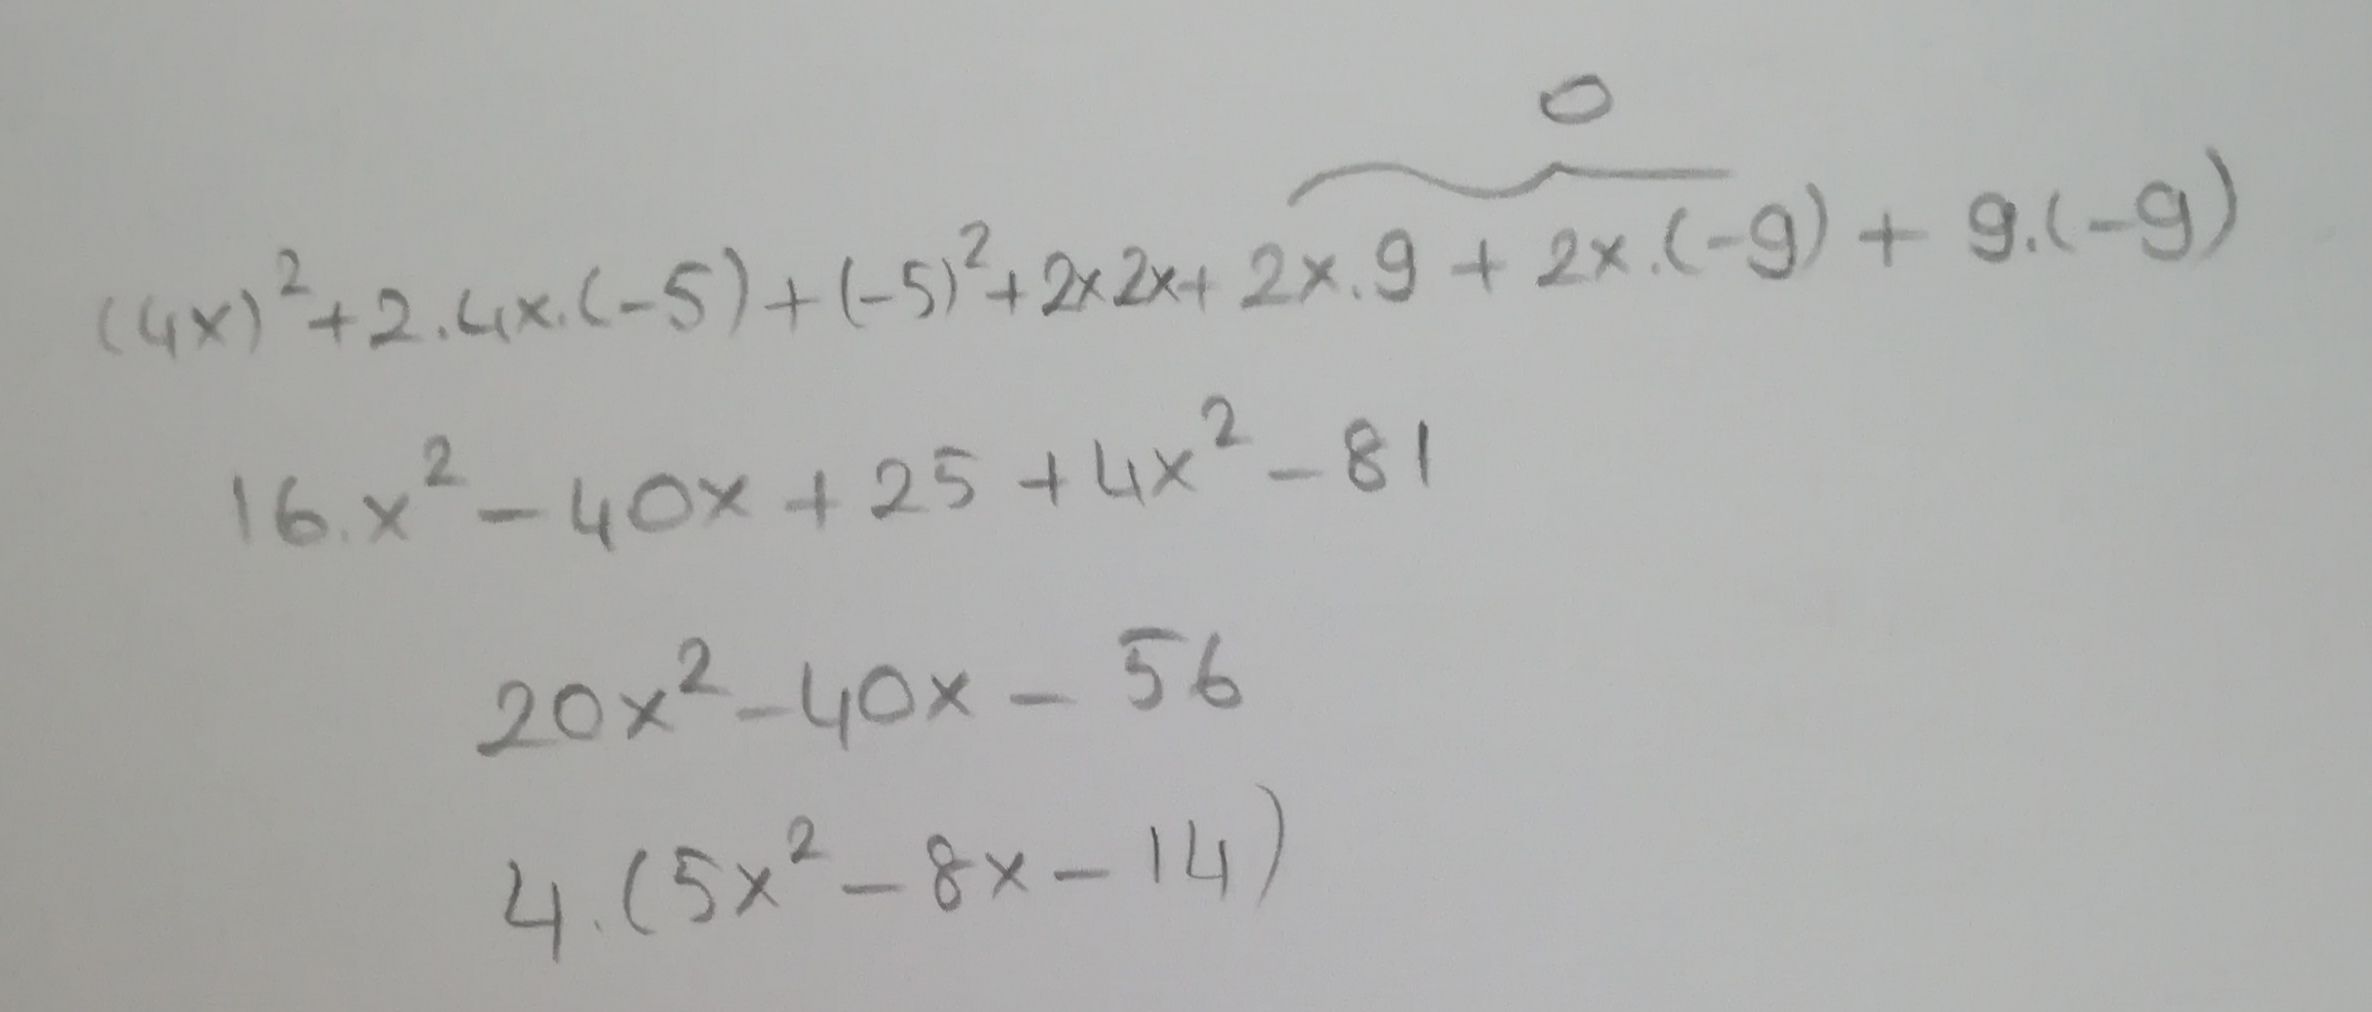 0
(4x)²+2.4x.(-5)+(-5)²+2x2x+2x.9+2x.(-9)+9.(-9)
16.x²-40x+25+4x²-81
20x²-40x-56
4.(5x²-8x-14)